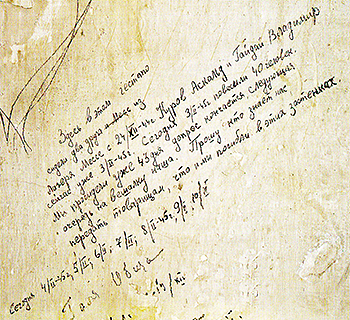 Здесь в этом гестапо
сидели два друга Месс из
лагеря Мессе с 24/XII-44г. Куров Аскольд и Гайдай Владимир
сейчас уже 3/II-45г. Сегодня 3/II-45г. повесили 40 человек.
Мы просидели уже 43 дня допрос кончается следующая
очередь на вешалку наша. Прошу кто знает нас
передать товарищам, что и мы погибли в этих застенках.
Сегодня 4/II-45г, 5/II, 6/II, 7/II, 8/II-45г, 9/II, 10/II